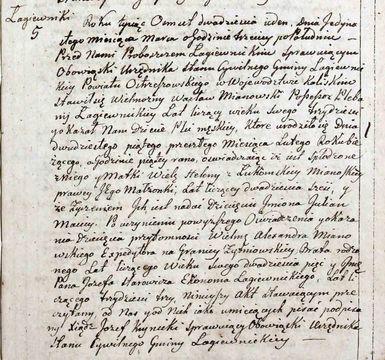 Łagiewniki
5
Roku Tysiąc Osmset dwudziestu ieden, Dnia Jedyna
stego Miesiąca Marca o Godzinie trzeciey popołudniu
Przed Nami Proboszczem Łagiewnickim Sprawuiącym
Obowiązki Urzędnika Stanu Cywilnego Gminy Łagiewnic
kiey Powiatu Ostrzeszowskiego w Województwie Kaliskim
Stawił się Wielmożny Wacław Mianowski Possessor Pleba
nij Łagiewnickiey Lat liczący wieku Swego trzydzieści
y okazał Nam Dziecie Płci męskiey, które urodziło się Dnia
dwudziestego piątego przeszłego Miesiąca Lutego Roku bie
żącego, o godzinie piątey rano, oświadczaiąc iż iest spłodzone
z niego y Matki Wielż Heleny z Łukomskich Mianoskiey
prawey Jego Matronki, Lat liczącey dwadzieścia Sześć, y
że życzeniem Jch iest nadać Dziecięciu Jmiona Julian
Maciey. Po uczynieniu powyższego Oświadczenia y okaza
nia Dziecięcia w przytomności Wielż Alexandra Miano
wskiego Expedytora na Granicy Brata rodzo
nego Lat liczącego Wieku Swego dwadzieścia pięć y
Pana Józefa Ekonoma Łagiewnickiego, Lat li
czącego trzydzieści trzy, Ninieyszy Akt Stawaiącym prze
czytany, od Nas y od Nich iako umieiących pisać podpisa
ny Xiądz Józef Sprawuiący Obowiązki Urzędnika
Stanu Cywilnego Gminy Łagiewnickiey